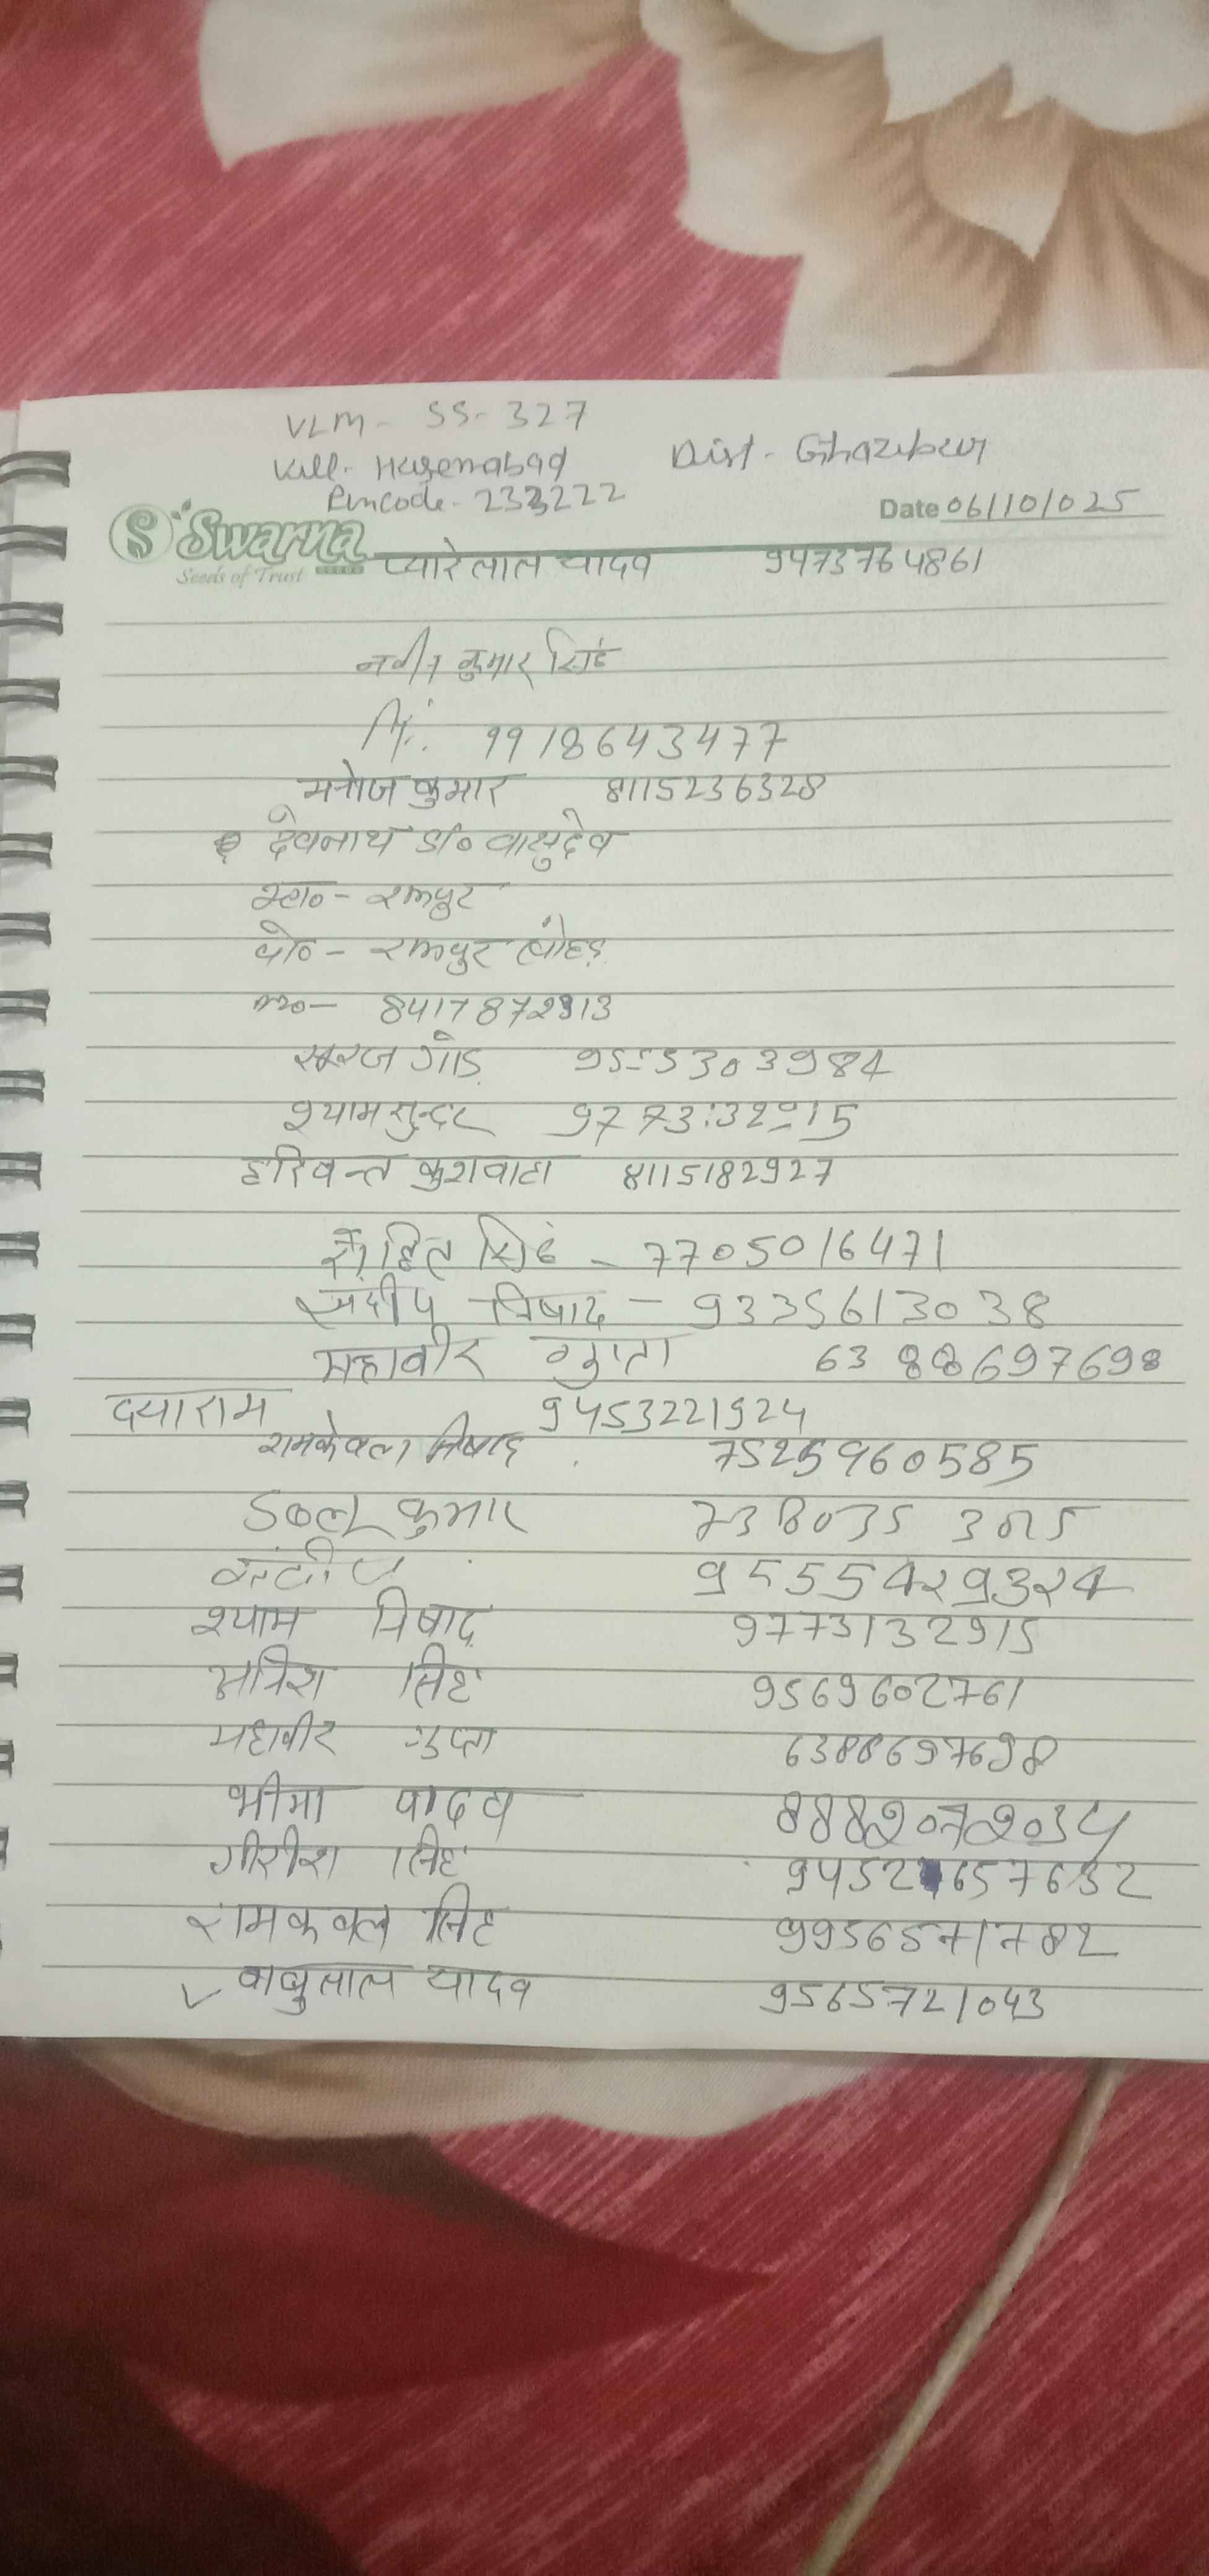 VLM - SS- 327
Vill- Husenabad Dist - Ghazipur
Pincode- 233222
Date 06/10/025
Swarna
Seeds of Trust
प्यारेलाल यादव 9473764861
नवीन कुमार सिंह
9918643477
मनोज कुमार 8115236328
देवनाथ S/० वासुदेव
ग्रा०- रामपुर
पो०- रामपुर
मो०- 8417872913
सूरज गोंड 9555303984
श्याम सुन्दर
हरिवन्त कुशवाहा 8115182927
रोहित सिंह - 7705016471
संदीप निषाद - 9335613038
महावीर गुप्ता 6388697698
दयाराम 9453221924
रामकेवल निषाद 7525960585
डबलू कुमार
9555429324
श्याम निषाद 9773132915
सिंह 9569602761
महावीर गुप्ता 6388697698
भीमा यादव
गीरीश सिंह
रामकवल सिंह 9956571782
बाबुलाल यादव 9565721043